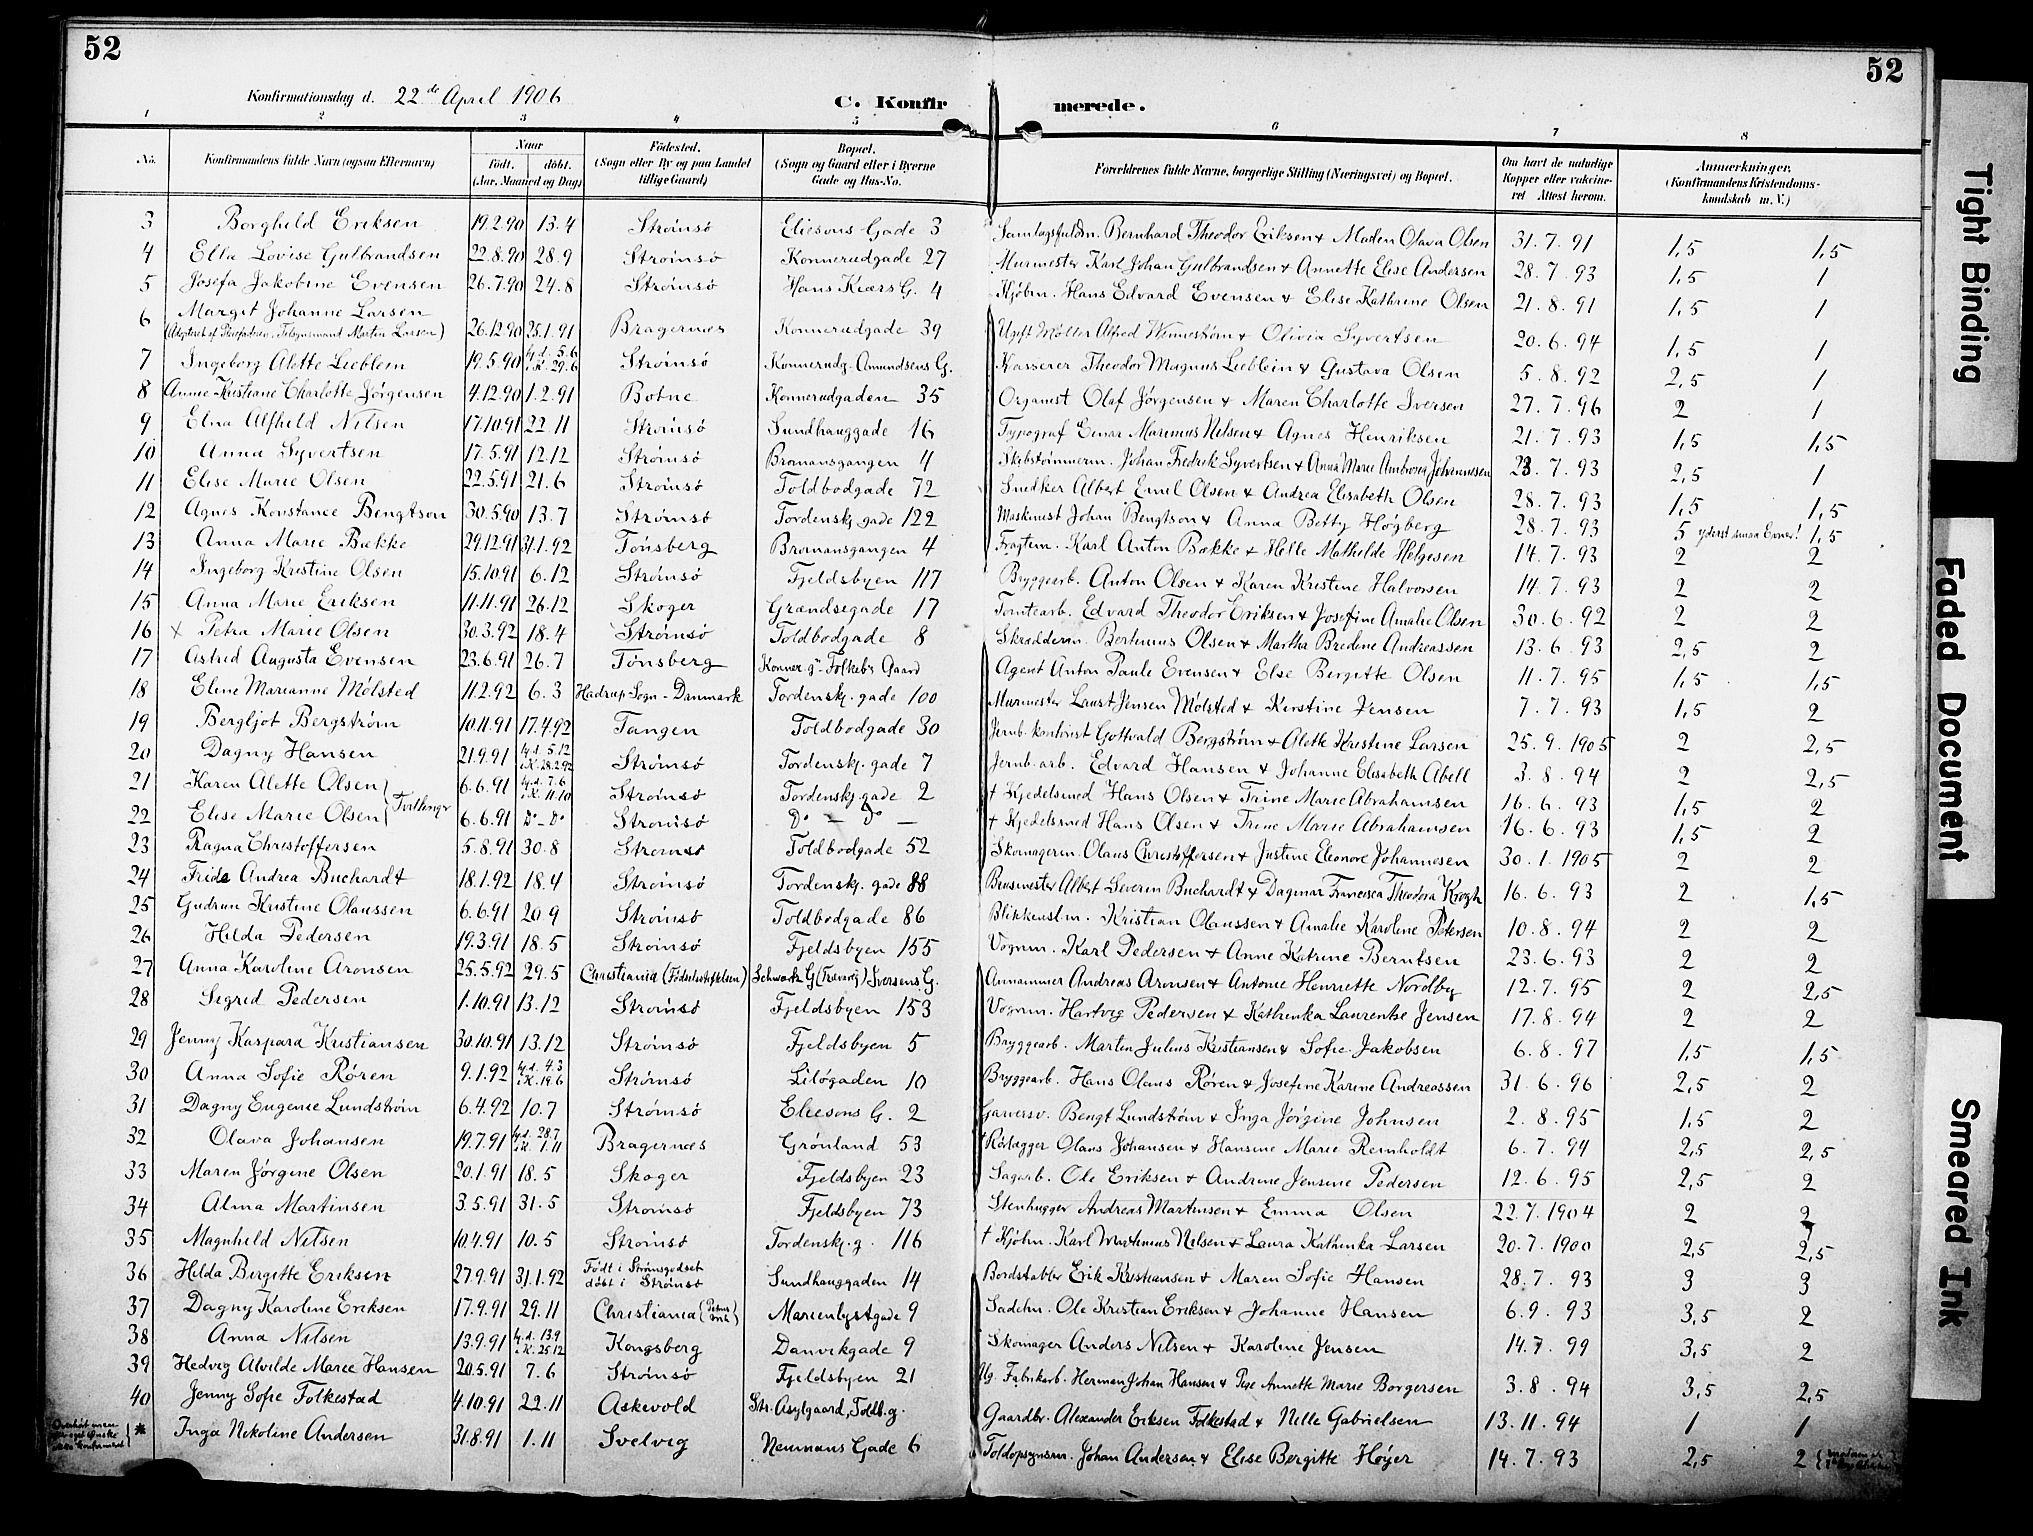 52
52
Konfirmationsdag d. 22de April 1906
C. Konfirmerede.
1 2 3 4 5 6 7 8
No. Konfirmandens fulde Navn (ogsaa Efternavn) Naar født. døbt. (Aar, Maaned og Dag) Fødested. (Sogn eller By og paa Landet tillige Gaard) Bopæl. (Sogn og Gaard eller i Byerne Gade og Hus-No. Forældrenes fulde Navne, borgerlige Stilling (Næringsvei) og Bopæl. Om havt de naturlige Kopper eller vakcineret Attest herom. Anmærkninger. (Konfirmandens Kristendomskundskab m. V.)
3 Borghild Eriksen 19.2.90 13.4 Strømsø Eliesons Gade 3 Samlagsfuldm. Bernhard Theodor Eriksen & Maden Olava Olsen 31.7.91 1,5 1,5
4 Ella Lovise Gulbrandsen 22.8.90 28.9 Strømsø Konnerudgade 27 Murmester Karl Johan Gulbrandsen & Annette Elise Andersen 28.7.93 1,5 1
5 Josefa Jakobine Evensen 26.7.90 24.8 Strømsø Hans Kiærs G. 4 Kjøbm. Hans Edvard Evensen & Elise Kathrine Olsen 21.8.91 1,5 1
6 Margit Johanne Larsen
(Adopteret af Martin Larsen) 26.12.90 25.1.91 Bragernes Konnerudgade 39 Ugift Møller Alfred Winnestrøm & Olivia Syvertsen 20.6.94 1,5 1
7 Ingeborg Alette Lieblein 19.5.90 hj.d. 5.6 i K. 29.6 Strømsø Konnerudg. Amundsens G. Kasserer Theodor Magnus Lieblein & Gustava Olsen 5.8.92 2,5 1
8 Annie Kristiane Charlotte Jørgensen 4.12.90 1.2.91 Botne Konnerudgaden 35 Organist Olaf Jørgensen & Maren Charlotte Iversen 27.7.96 2 1
9 Elna Alfhild Nilsen 17.10.91 22.11 Strømsø Sundhauggade 16 Typograf Einar Marinius Nilsen & Agnes Henriksen 21.7.93 1,5 1,5
10 Anna Syvertsen 17.5.91 12.12 Strømsø Bromansgangen 4 Skibstømmerm. Johan Fredrik Syvertsen & Anna Marie Ambrosia Johannesen 23.7.93 2,5 1
11 Elise Marie Olsen 22.5.91 21.6 Strømsø Toldbodgade 72 Snedker Albert Emil Olsen & Andrea Elisabeth Olsen 28.7.93 1,5 1,5
12 Agnes Konstance Bengtson 30.5.90 13.7 Strømsø Tordenskj. gade 122 Maskinist Johan Bengtson & Anna Betty Høgberg 28.7.93 5 yderst smaa Evner! 1,5
13 Anna Marie Bakke 29.12.91 31.1.92 Tønsberg Bromansgangen 4 Fragtem. Karl Anton Bakke & Helle Mathilde Helgesen 14.7.93 2 2
14 Ingeborg Kristine Olsen 15.10.91 6.12 Strømsø Fjeldsbyen 117 Bryggearb. Anton Olsen & Karen Kristine Halvorsen 14.7.93 2 2
15 Anna Marie Eriksen 11.11.91 26.12 Skoger Grændsegade 17 Tomtearb. Edvard Theodor Eriksen & Josefine Amalie Olsen 30.6.92 2 2
16 × Petra Marie Olsen 30.3.92 18.4 Strømsø Toldbodgade 8 Skrædderm. Bertinius Olsen & Martha Bredine Andreassen 13.6.93 2,5 2
17 Astrid Augusta Evensen 23.6.91 26.7 Tønsberg Konner.g. - Folkebs Gaard Agent Anton Paule Evensen & Else Bergitte Olsen 11.7.95 1,5 1,5
18 Eline Marianne Mølsted 11.2.92 6.3 Hadrup Sogn - Danmark Tordenskj. gade 100 Murmester Laust Jensen Mølsted & Kirstine Jensen 7.7.93 1,5 2
19 Bergljot Bergstrøm 10.11.91 17.4.92 Tangen Toldbodgade 30 Jernb. kontorist Gottvald Bergstrøm & Alette Kristine Larsen 25.9.1905 2 2,5
20 Dagny Hansen 21.9.91 hj.d. 5.12 i K. 28.2.92 Strømsø Tordenskj. gade 7 Jernb. arb. Edvard Hansen & Johanne Elisabeth Abell 3.8.94 2 2,5
21 Karen Alette Olsen 6.6.91 hj.d. 7.6 i K. 11.10 Strømsø Tordenskj. gade 2 † Kjedelsmed Hans Olsen & Trine Marie Abrahamsen 16.6.93 1,5 2
Tvillinger
22 Elise Marie Olsen 6.6.91 Do - Do Strømsø Do — Do — † Kjedelsmed Hans Olsen & Trine Marie Abrahamsen 16.6.93 1,5 2
23 Ragna Christoffersen 5.8.91 30.8 Strømsø Toldbodgade 52 Skomagerm. Olaus Christoffersen & Justine Eleonore Johannesen 30.1.1905 2 2
24 Frida Andrea Buchardt 18.1.92 18.4 Strømsø Tordenskj. gade 88 Brusmester Albert Severin Buchardt & Dagmar Francisca Theodora Krogh 16.6.93 2 1,5
25 Gudrun Kristine Olaussen 6.6.91 20.9 Strømsø Toldbodgade 86 Blikkensl.m. Kristian Olaussen & Amalie Karoline Petersen 10.8.94 2 2
26 Hilda Pedersen 19.3.91 18.5 Strømsø Fjeldsbyen 155 Vognm. Karl Pedersen & Anne Katrine Berntsen 23.6.93 2 2
27 Anna Karoline Aronsen 25.5.92 29.5 Christiania (Fødselsstiftelsen) Schwartz G (Tversvei) Iversens G. Annammer Andreas Aronsen & Antonie Henriette Nordby 12.7.95 2 2,5
28 Sigrid Pedersen 1.10.91 13.12 Strømsø Fjeldsbyen 153 Vognm. Hartvig Pedersen & Kathinka Laurentse Jensen 17.8.94 2 2
29 Jenny Kaspara Kristiansen 30.10.91 13.12 Strømsø Fjeldsbyen 5 Bryggearb. Martin Julius Kristiansen & Sofie Jakobsen 6.8.97 1,5 1,5
30 Anna Sofie Røren 9.1.92 hj.d. 4.3 i K. 19.6 Strømsø Liløgaden 10 Bryggearb. Hans Olaus Røren & Josefine Karine Andreassen 31.6.96 2,5 2
31 Dagny Eugenie Lundstrøm 6.4.92 10.7 Strømsø Eliesons G. 2 Garversv. Bengt Lundstrøm & Inga Jørgine Johnsen 2.8.95 1,5 2
32 Olava Johansen 19.7.91 hj.d. 28.7 i K. 1.11 Bragernæs Grønland 53 † Rørlægger Olaus Johansen & Hansine Marie Reinholdt 6.7.94 2,5 2,5
33 Maren Jørgine Olsen 20.1.91 18.5 Skoger Fjeldsbyen 23 Sagarb. Ole Eriksen & Andrine Jensine Pedersen 12.6.95 2,5 2
34 Alma Martinsen 3.5.91 31.5 Strømsø Fjeldsbyen 73 Stenhugger Andreas Martinsen & Emma Olsen 22.7.1904 2 2
35 Magnhild Nilsen 10.4.91 10.5 Strømsø Tordenskj.g. 116 † Kjøbm. Karl Martinius Nilsen & Laura Kathinka Larsen 20.7.1900 2,5 2,5
36 Hilda Bergitte Eriksen 27.9.91 31.1.92 Født i Strømsgodset døbt i Strømsø Sundhauggaden 14 Bordstabler Erik Kristiansen & Maren Sofie Hansen 28.7.93 3 3
37 Dagny Karoline Eriksen 17.9.91 29.11 Christiania Marienlystgade 9 Sadelm. Ole Kristian Eriksen & Johanne Hansen 6.9.93 3,5 2
38 Anna Nilsen 13.9.91 hj.d. 13.9 i K. 25.12 Kongsberg Danvikgade 9 Skomager Anders Nilsen & Karoline Jensen 14.7.99 3,5 2
39 Hedvig Alvilde Marie Hansen 20.5.91 7.6 Strømsø Fjeldsbyen 21 Ug. Fabrikarb. Herman Johan Hansen & Pige Annette Marie Borgersen 3.8.94 3,5 2,5
40 Jenny Sofie Folkestad 4.10.91 22.11 Askevold Str. Asylgaard, Toldb.g. Gaardbr. Alexander Eriksen Folkestad & Nille Gabrielsen 13.11.94 1 1
* Inga Nikoline Andersen 31.8.91 1.11 Svelvig Neumans Gade 6 Toldopsynsm. Johan Andersen & Elise Bergitte Høyer 14.7.93 2,5 2
Tight Binding
Faded Document
Smeared Ink